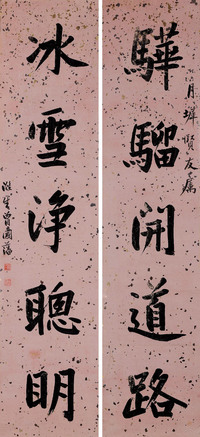 驊騮開道路
月墀賢友屬
冰雪净聰明
滌生曾國藩